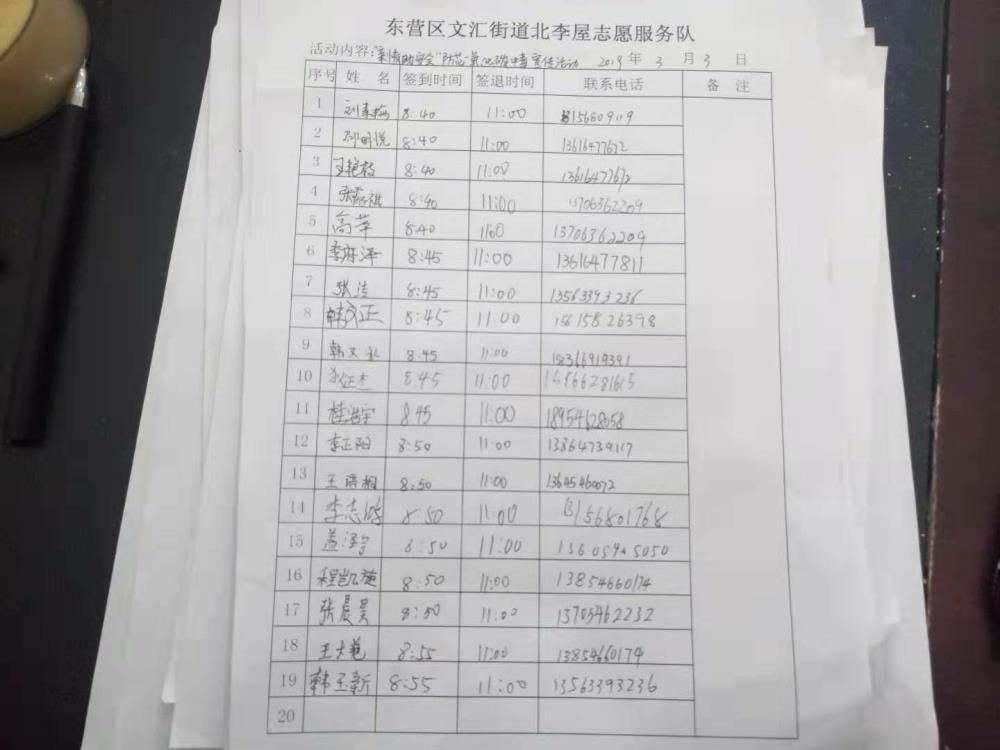 东营区文汇街道北李屋志愿服务队
活动内容:"亲情助安全"防范一氧化碳中毒宣传活动 2019 年 3 月 3 日
序号 姓 名 签到时间 签退时间 联系电话 备 注
1 刘春梅 8:40 11:00 13156809119
2 孙明悦 8:40 11:00 13616477672
3 王艳枝 8:40 11:00 13616477672
4 8:40 11:00 13706362209
5 高苹 8:40 1160 13706362209
6 李府泽 8:45 11:00 13616477811
7 张洁 8:45 11:00 13563393236
8 韩文正 8:45 11:00 15615826398
9 韩文永 8:45 11:00 18366919391
10 8:45 11:00
11 桂浩宇 8:45 11:00 18954628058
12 李正阳 8:50 11:00 13864739117
13 王 8:50 11:00 13645460072
14 李志鹏 8:50 11:00 13156801768
15 盖泽宇 8:50 11:00 13605465050
16 程凯旋 8:50 11:00 13854660174
17 张晨昊 8:50 11:00 13705462232
18 王大艳 8:55 11:00 13854660174
19 韩玉新 8:55 11:00 13563393236
20